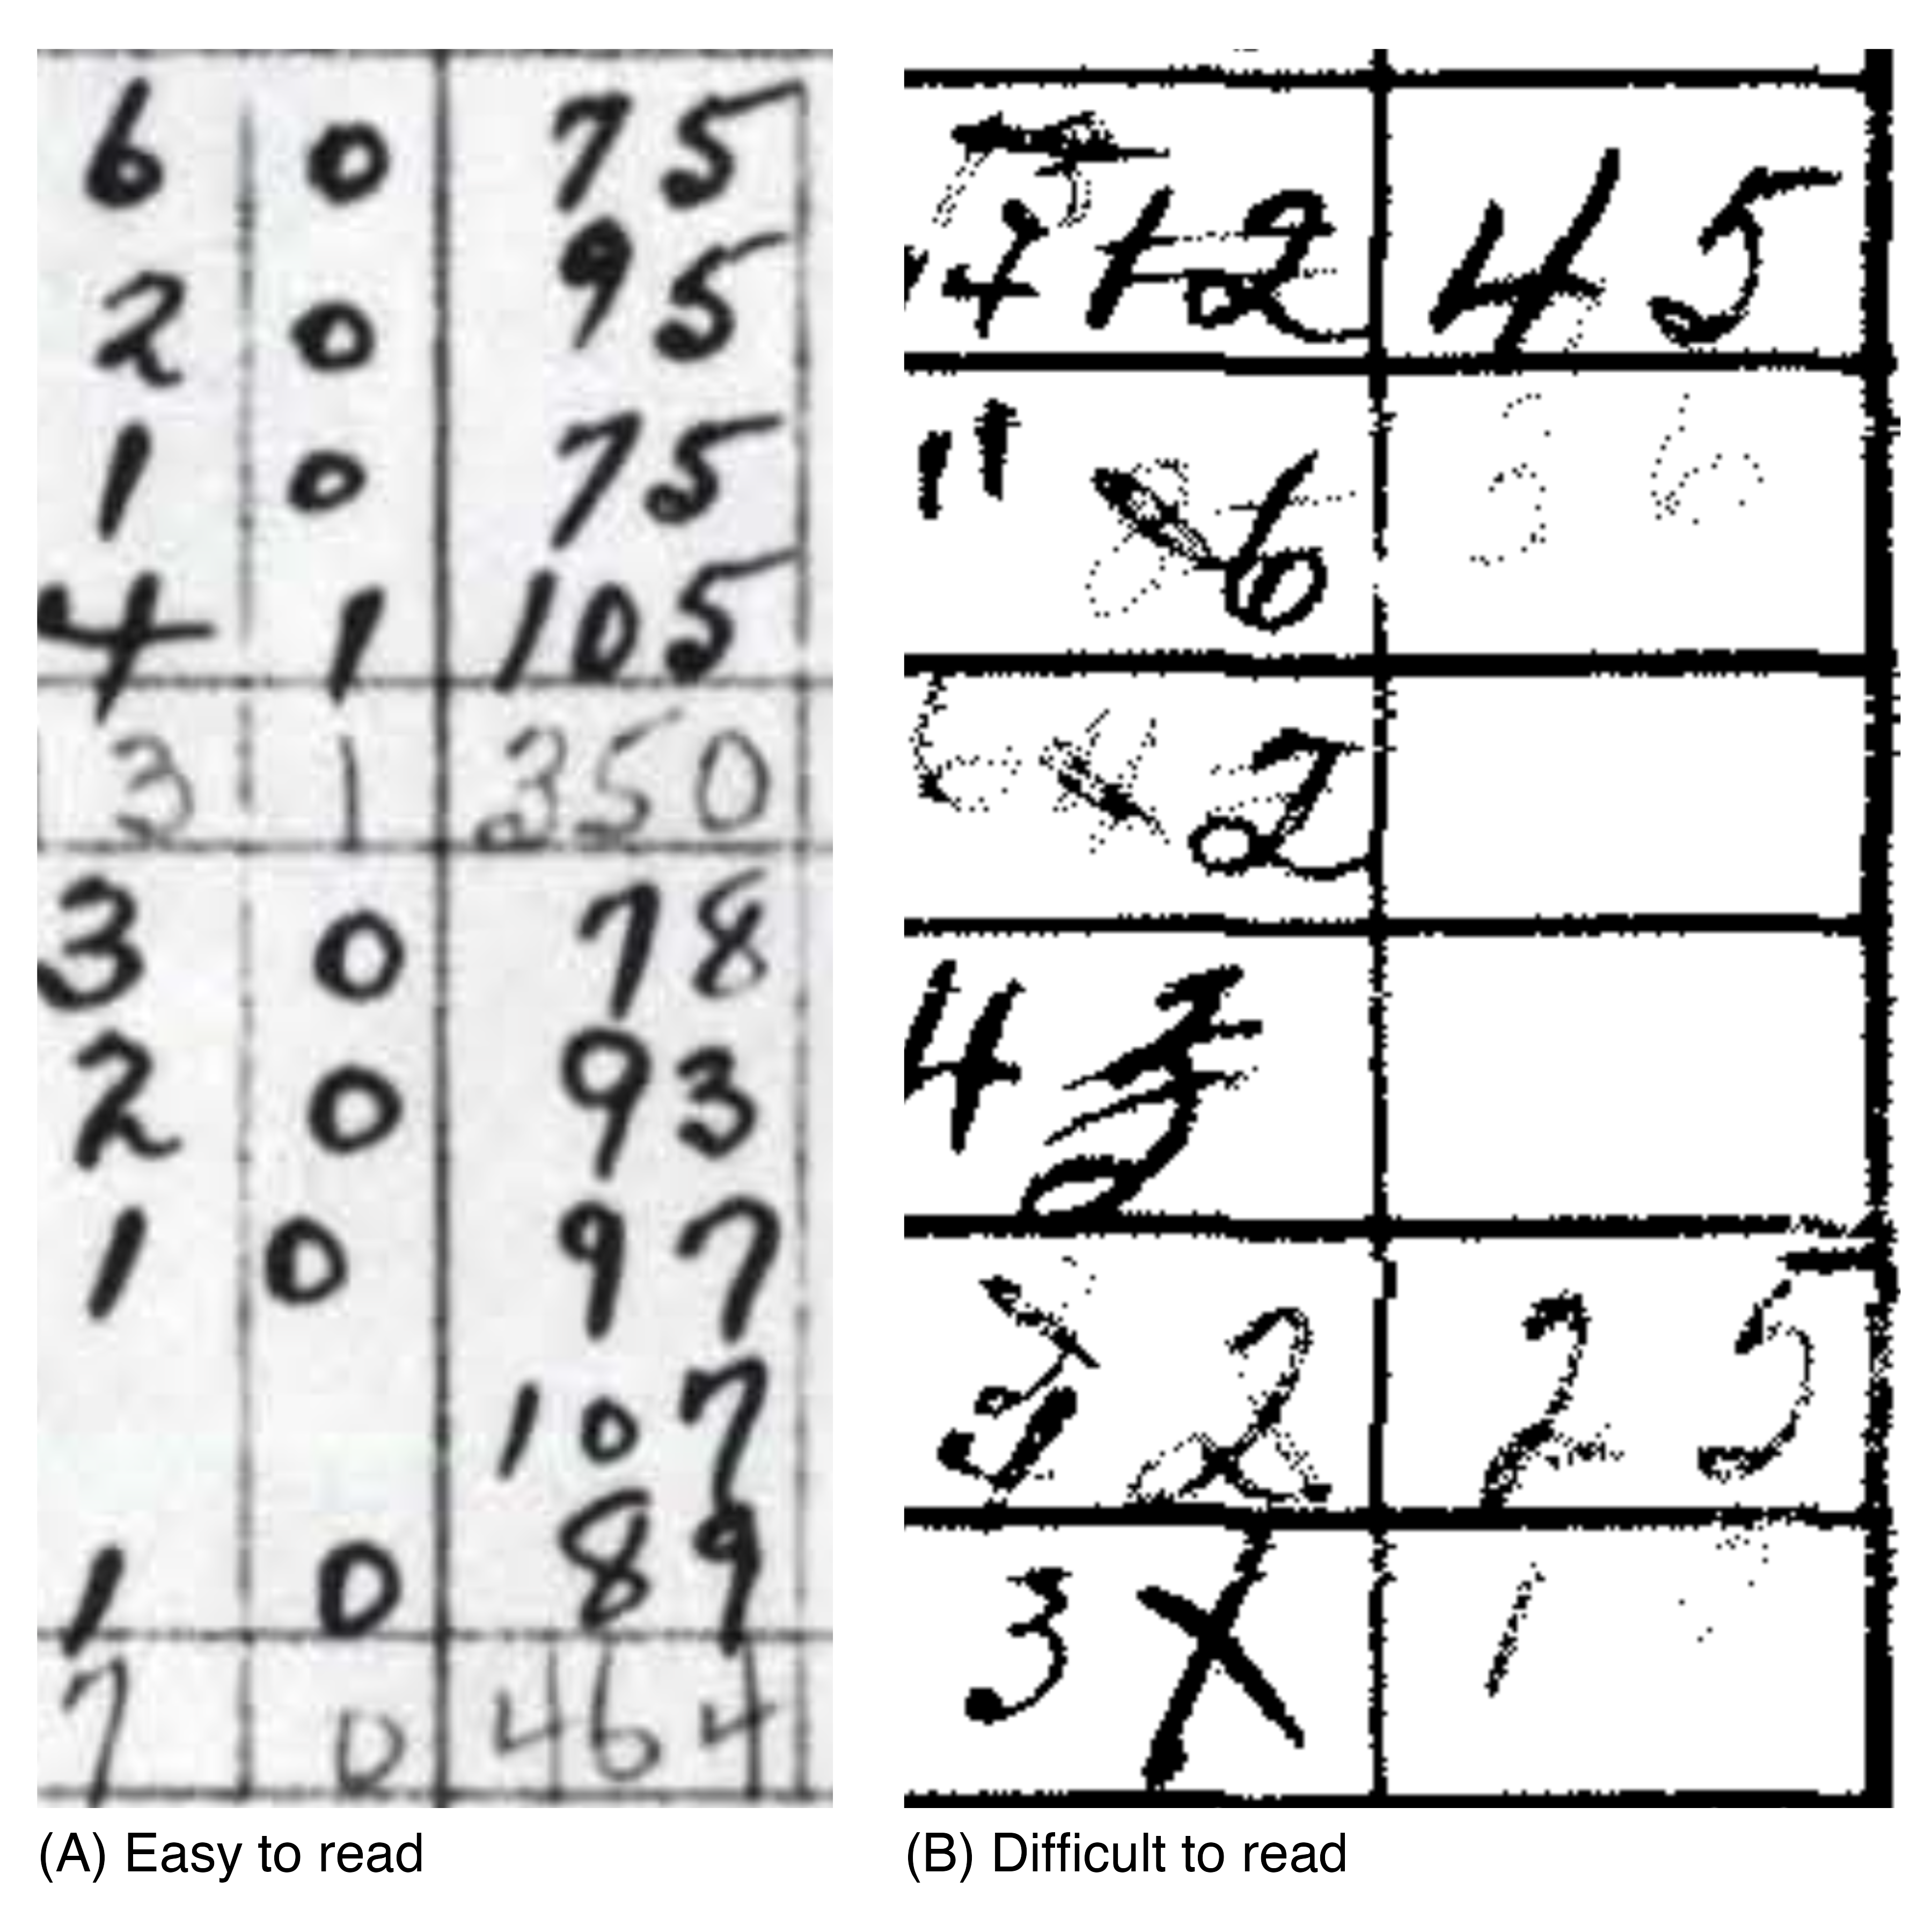 6 0 75
2 0 95
1 0 75
4 1 105
3 1 350
3 0 78
2 0 93
1 0 97
107
1 0 89
7 0 464
(A) Easy to read
2 45
" 6 36
2
4
2 25
3 X 1
(B) Difficult to read